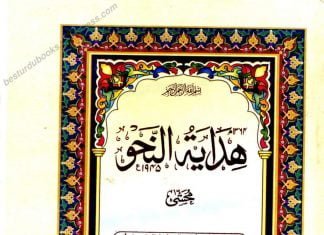 besturdubooks.wordpress.com
بسم اللہ الرحمن الرحیم
هداية النحو
محشی